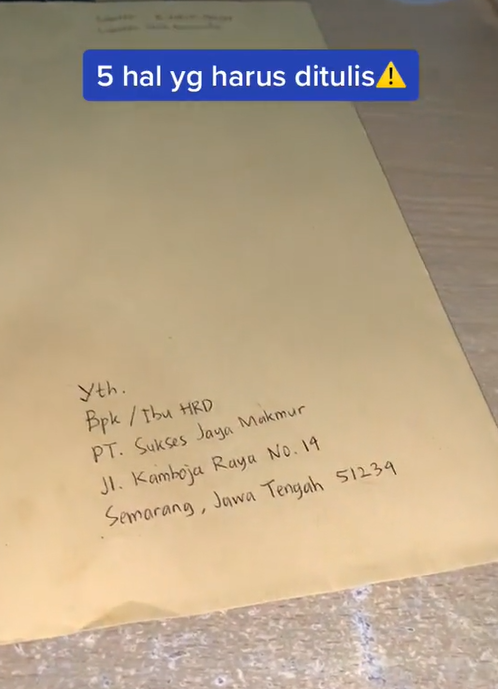 5 hal yg harus ditulis⚠️
Yth.
Bpk / Ibu HRD
PT. Sukses Jaya Makmur
Jl. Kamboja Raya No. 19
Semarang, Jawa Tengah 51239